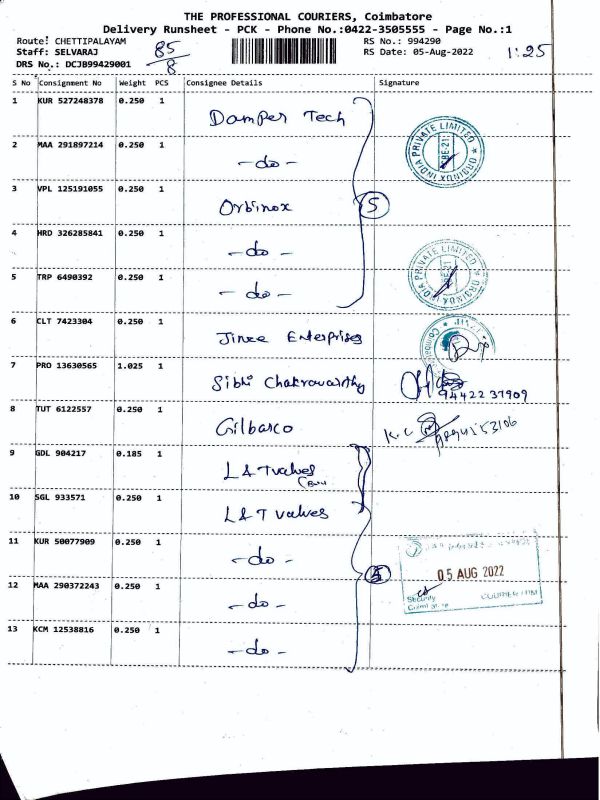 THE PROFESSIONAL COURIERS, Coimbatore
Delivery Runsheet - PCK - Phone No.:0422-3505555 - Page No.:1
Route: CHETTIPALAYAM
Staff: SELVARAJ
DRS No.: DCJB99429001
85/8
RS No.: 994290
RS Date: 05-Aug-2022
1:25
S No Consignment No Weight PCS Consignee Details Signature
1 KUR 527248378 0.250 1 Damper Tech
2 MAA 291897214 0.250 1 -do-
3 VPL 125191055 0.250 1 Orbinox
4 HRD 326285841 0.250 1 -do-
5 TRP 6490392 0.250 1 -do-
5
ORBINOX INDIA PRIVATE LIMITED
ORBINOX INDIA PRIVATE LIMITED
6 CLT 7423304 0.250 1 Jinee Enterprises
7 PRO 13630565 1.025 1 Sibhi Chakrawarthy
8 TUT 6122557 0.250 1 Gilbarco
9 GDL 904217 0.185 1 L&T valves
10 SGL 933571 0.250 1 L&T valves
11 KUR 50077909 0.250 1 -do-
05 AUG 2022
Security
12 MAA 290372243 0.250 1 -do-
13 KCM 12538816 0.250 1 -do-